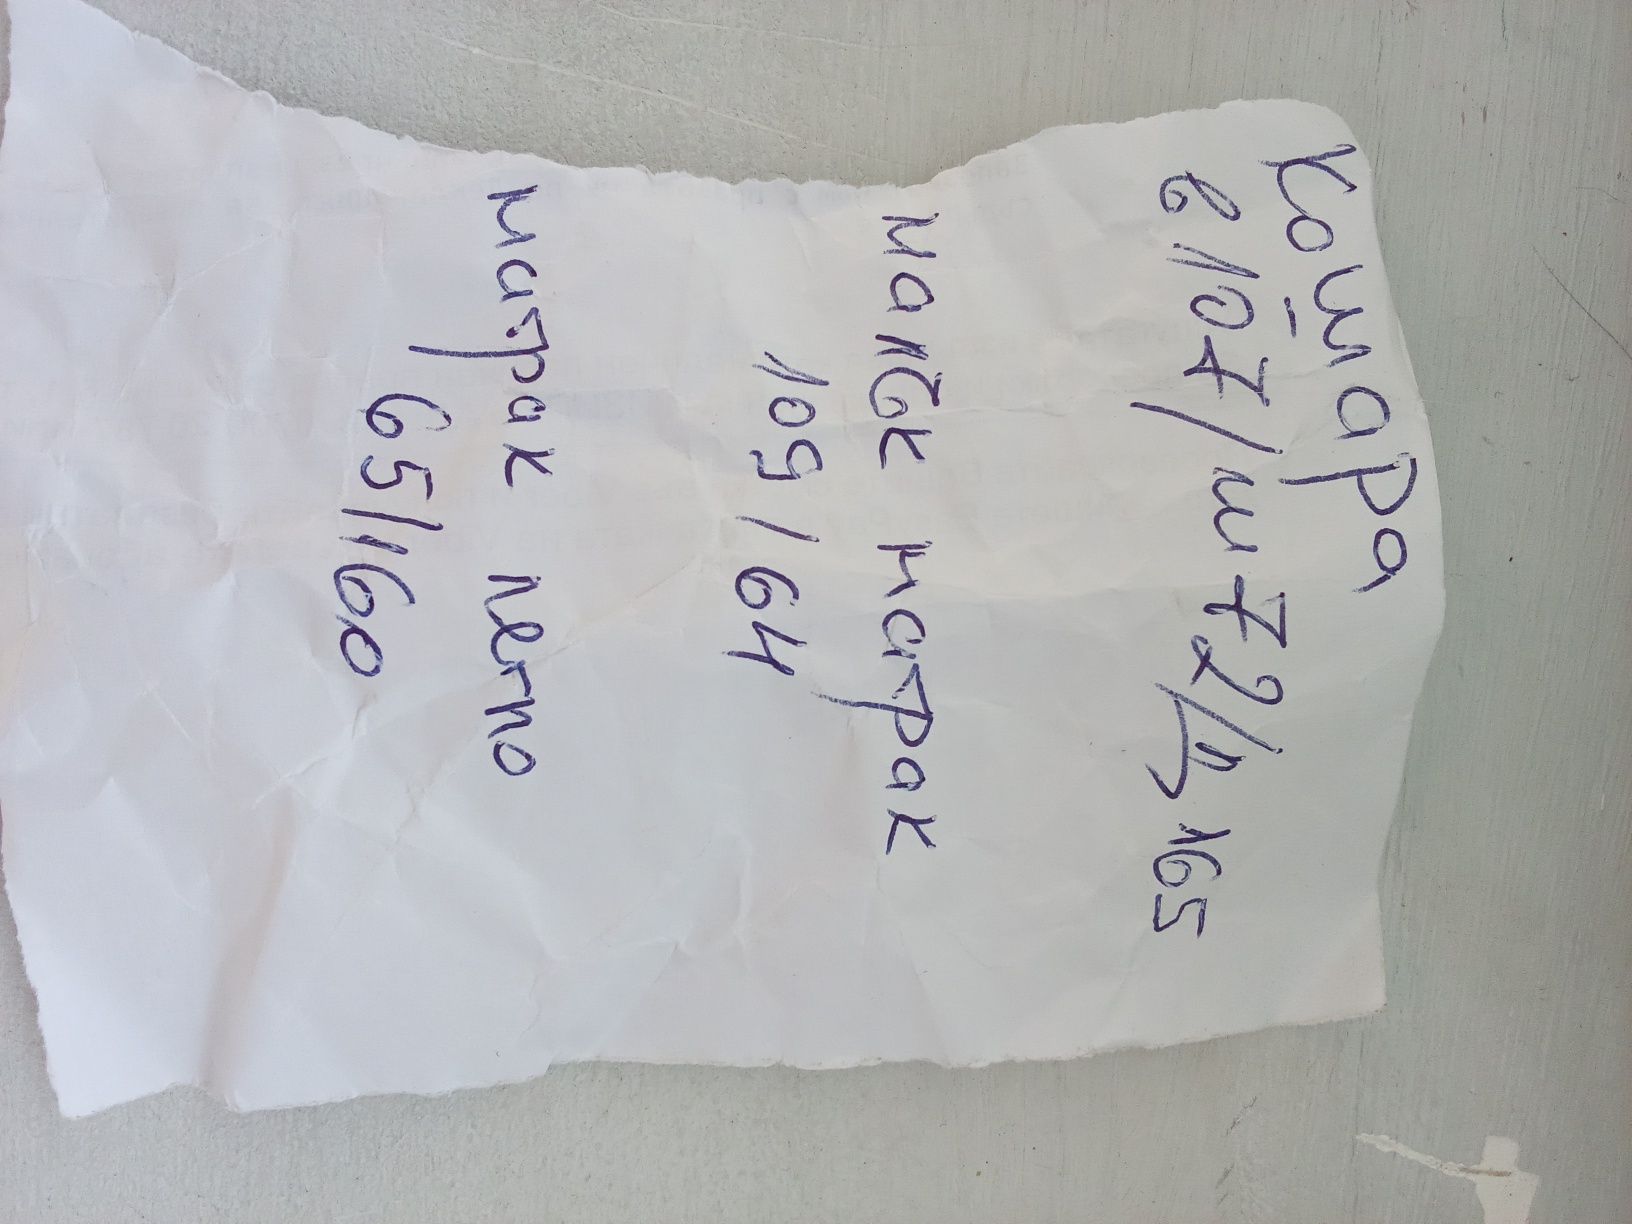 кошара
в 107/ш 72/д 165
малък матрак
109 / 64
матрак легло
65/160